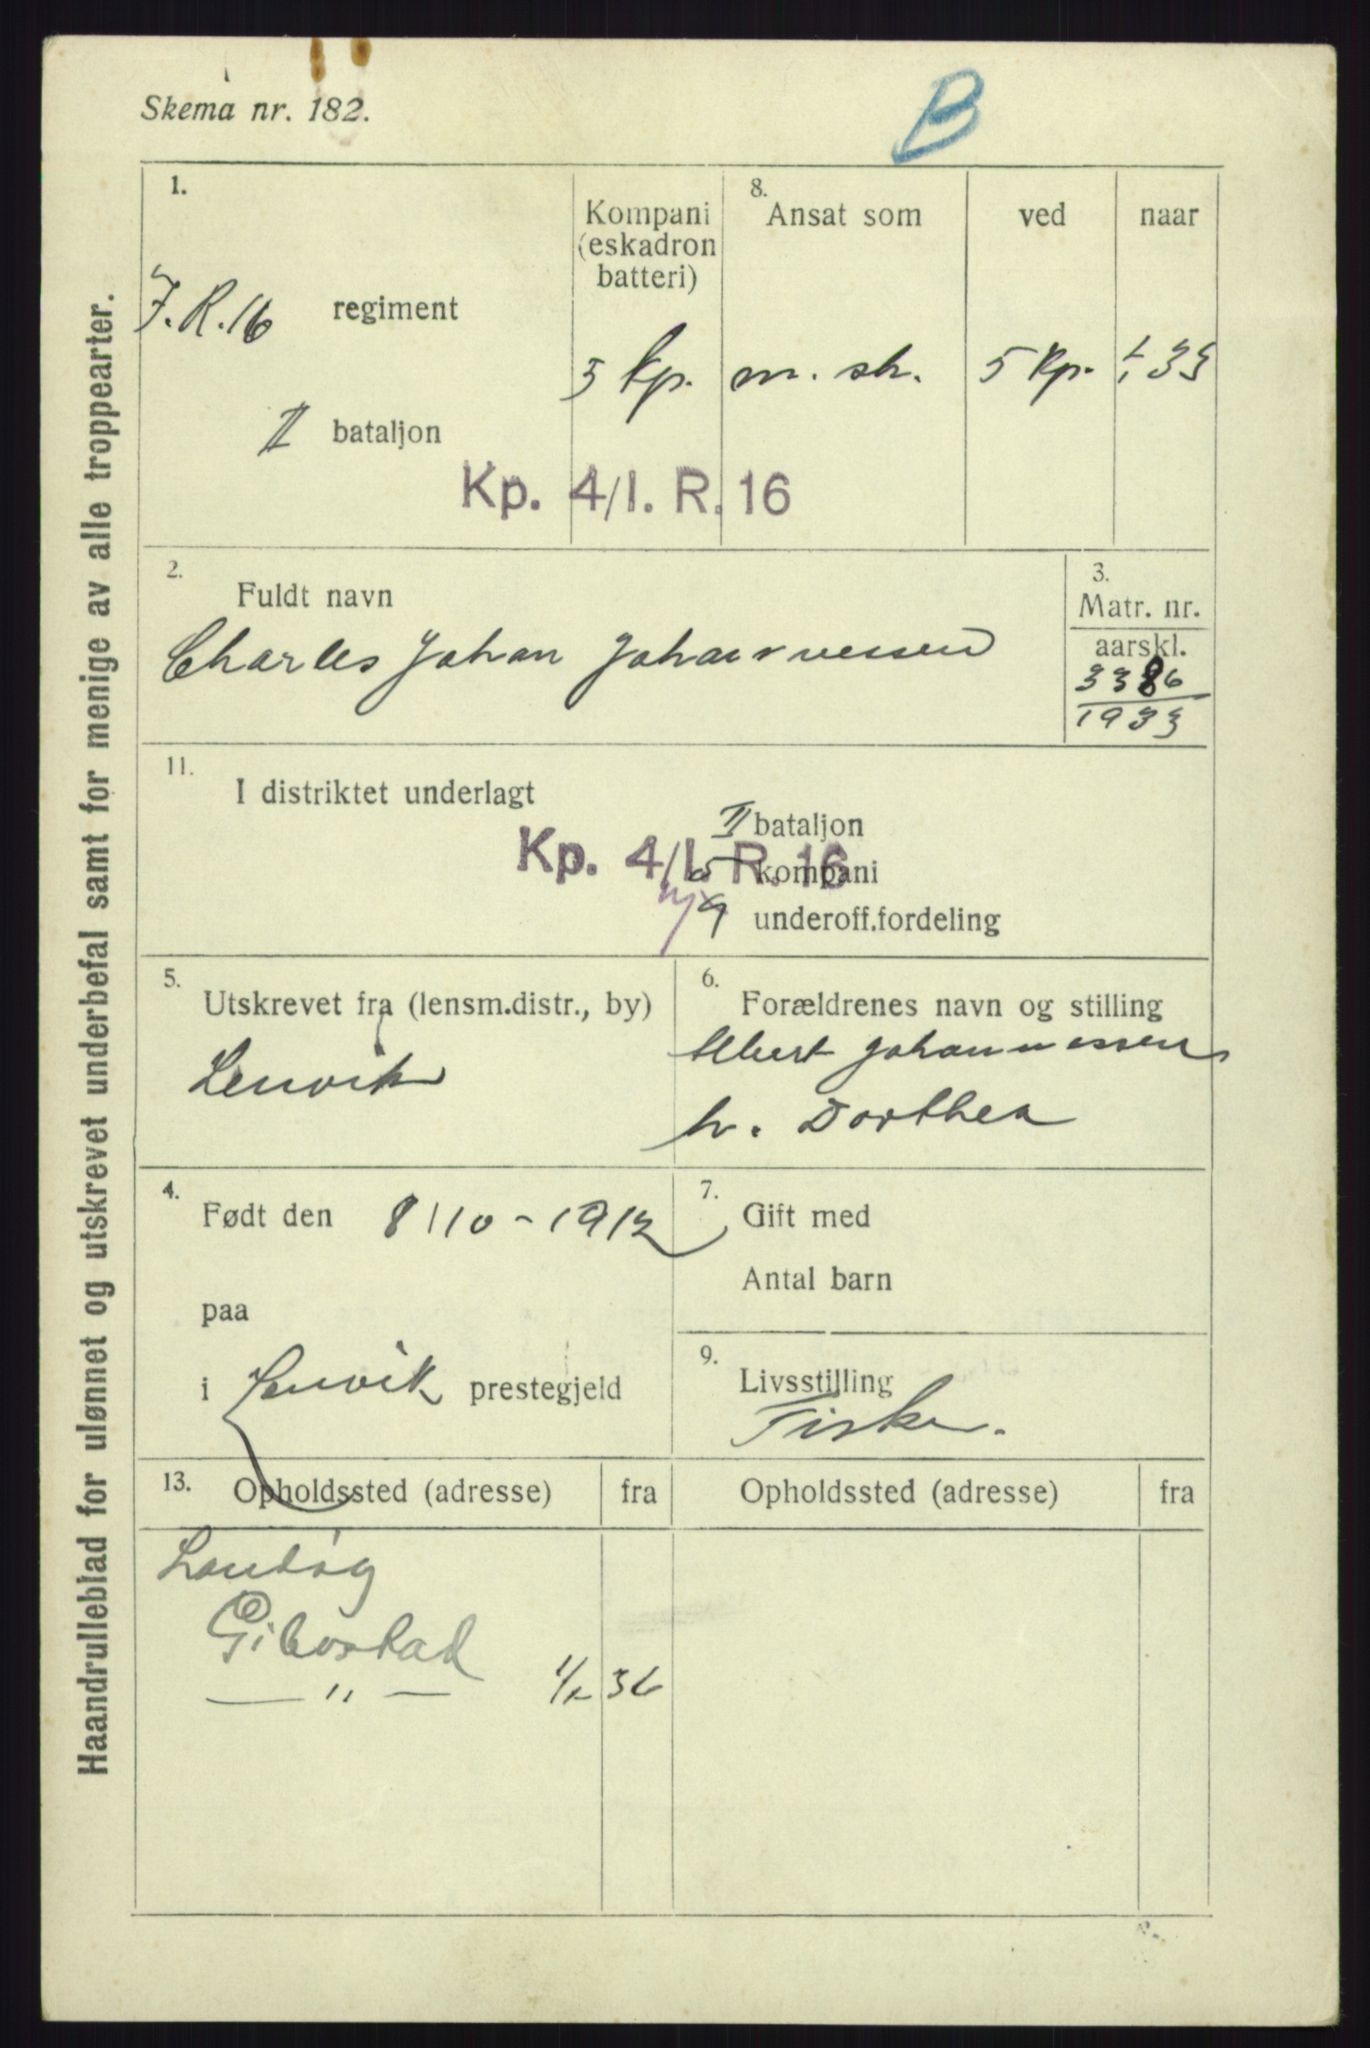 Skema nr. 182.
B
Haandrulleblad for ulønnet og utskrevet underbefal samt for menige av alle troppearter.
1.
I.R.16 regiment
II bataljon
Kompani
(eskadron
batteri)
5 Kp.
8.
Ansat som
m. sk.
ved
5 Kp.
naar
1/1 33
Kp. 4/I. R. 16
2.
Fuldt navn
Charles Johan Johannessen
3.
Matr. nr.
aarskl.
3386
1933
11.
I distriktet underlagt
II bataljon
Kp. 4/I. R. 16
5 kompani
9 underoff.fordeling
5.
Utskrevet fra (lensm.distr., by)
Lenvik
6.
Forældrenes navn og stilling
Albert Johannessen
h. Dorthea
4.
Født den 8/10-1912
paa
i Lenvik prestegjeld
7.
Gift med
Antal barn
9.
Livsstilling
Fisker.
13. Opholdssted (adresse) fra
Opholdssted (adresse) fra
Laukøy
Gibostad
— " — 36